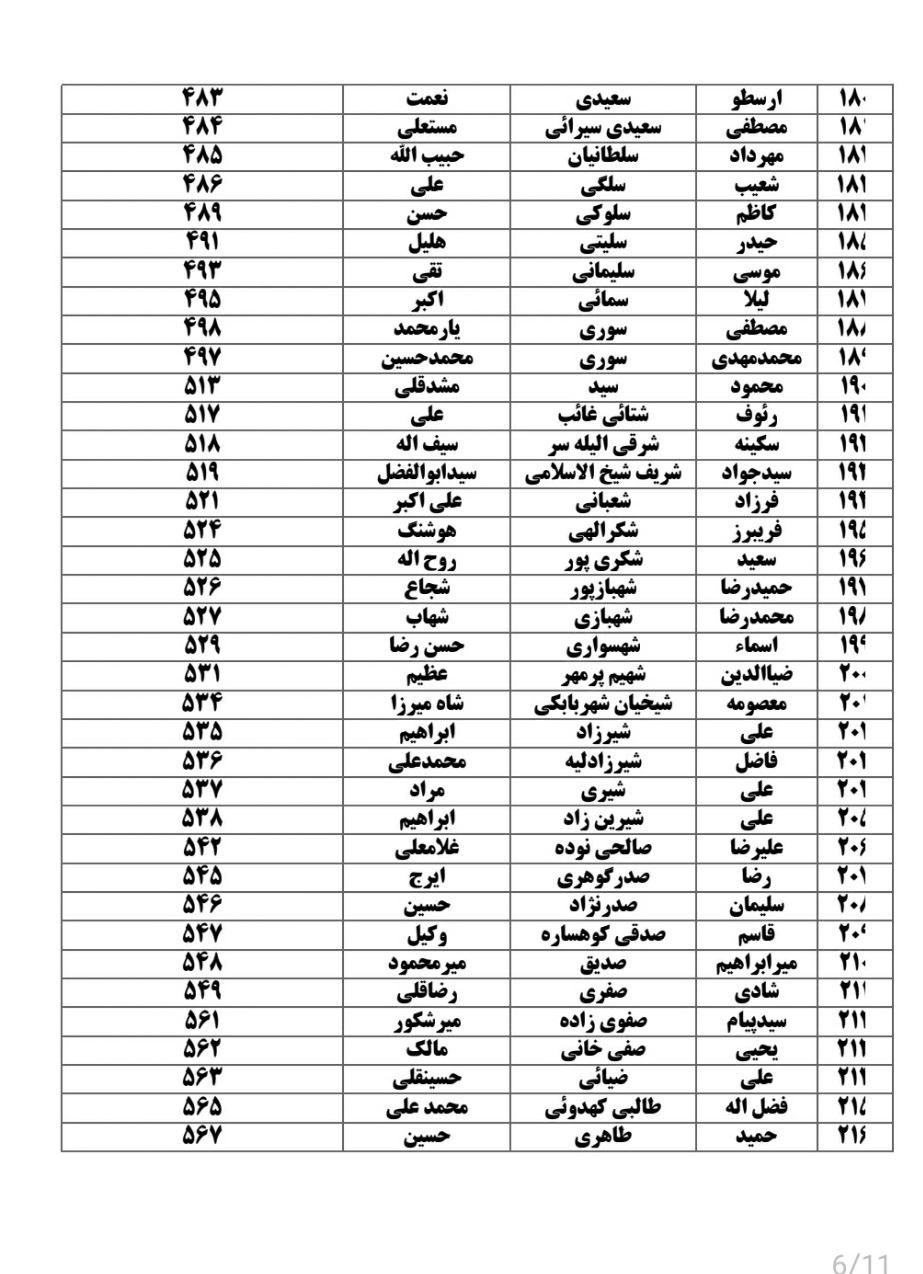 ۱۸۰ ارسطو سعیدی نعمت ۴۸۳
۱۸۱ مصطفی سعیدی سیرائی مستعلی ۴۸۴
۱۸۲ مهرداد سلطانیان حبیب الله ۴۸۵
۱۸۳ شعیب سلگی علی ۴۸۶
۱۸۴ کاظم سلوکی حسن ۴۸۹
۱۸۵ حیدر سلیتی هلیل ۴۹۱
۱۸۶ موسی سلیمانی تقی ۴۹۳
۱۸۷ لیلا سمائی اکبر ۴۹۵
۱۸۸ مصطفی سوری یارمحمد ۴۹۸
۱۸۹ محمدمهدی سوری محمدحسین ۴۹۷
۱۹۰ محمود سید مشدقلی ۵۱۳
۱۹۱ رئوف شتائی غائب علی ۵۱۷
۱۹۲ سکینه شرقی الیله سر سیف اله ۵۱۸
۱۹۳ سیدجواد شریف شیخ الاسلامی سیدابوالفضل ۵۱۹
۱۹۴ فرزاد شعبانی علی اکبر ۵۲۱
۱۹۵ فریبرز شکرالهی هوشنگ ۵۲۴
۱۹۶ سعید شکری پور روح اله ۵۲۵
۱۹۷ حمیدرضا شهبازپور شجاع ۵۲۶
۱۹۸ محمدرضا شهبازی شهاب ۵۲۷
۱۹۹ اسماء شهسواری حسن رضا ۵۲۹
۲۰۰ ضیاالدین شهیم پرمهر عظیم ۵۳۱
۲۰۱ معصومه شیخیان شهربابکی شاه میرزا ۵۳۴
۲۰۲ علی شیرزاد ابراهیم ۵۳۵
۲۰۳ فاضل شیرزادلیه محمدعلی ۵۳۶
۲۰۴ علی شیری مراد ۵۳۷
۲۰۵ علی شیرین زاد ابراهیم ۵۳۸
۲۰۶ علیرضا صالحی نوده غلامعلی ۵۴۲
۲۰۷ رضا صدرگوهری ایرج ۵۴۵
۲۰۸ سلیمان صدرنژاد حسین ۵۴۶
۲۰۹ قاسم صدقی کوهساره وکیل ۵۴۷
۲۱۰ میرابراهیم صدیق میرمحمود ۵۴۸
۲۱۱ شادی صفری رضاقلی ۵۴۹
۲۱۲ سیدپیام صفوی زاده میرشکور ۵۶۱
۲۱۳ یحیی صفی خانی مالک ۵۶۲
۲۱۴ علی ضیائی حسینقلی ۵۶۳
۲۱۵ فضل اله طالبی کهدوئی محمد علی ۵۶۵
۲۱۶ حمید طاهری حسین ۵۶۷
6/11